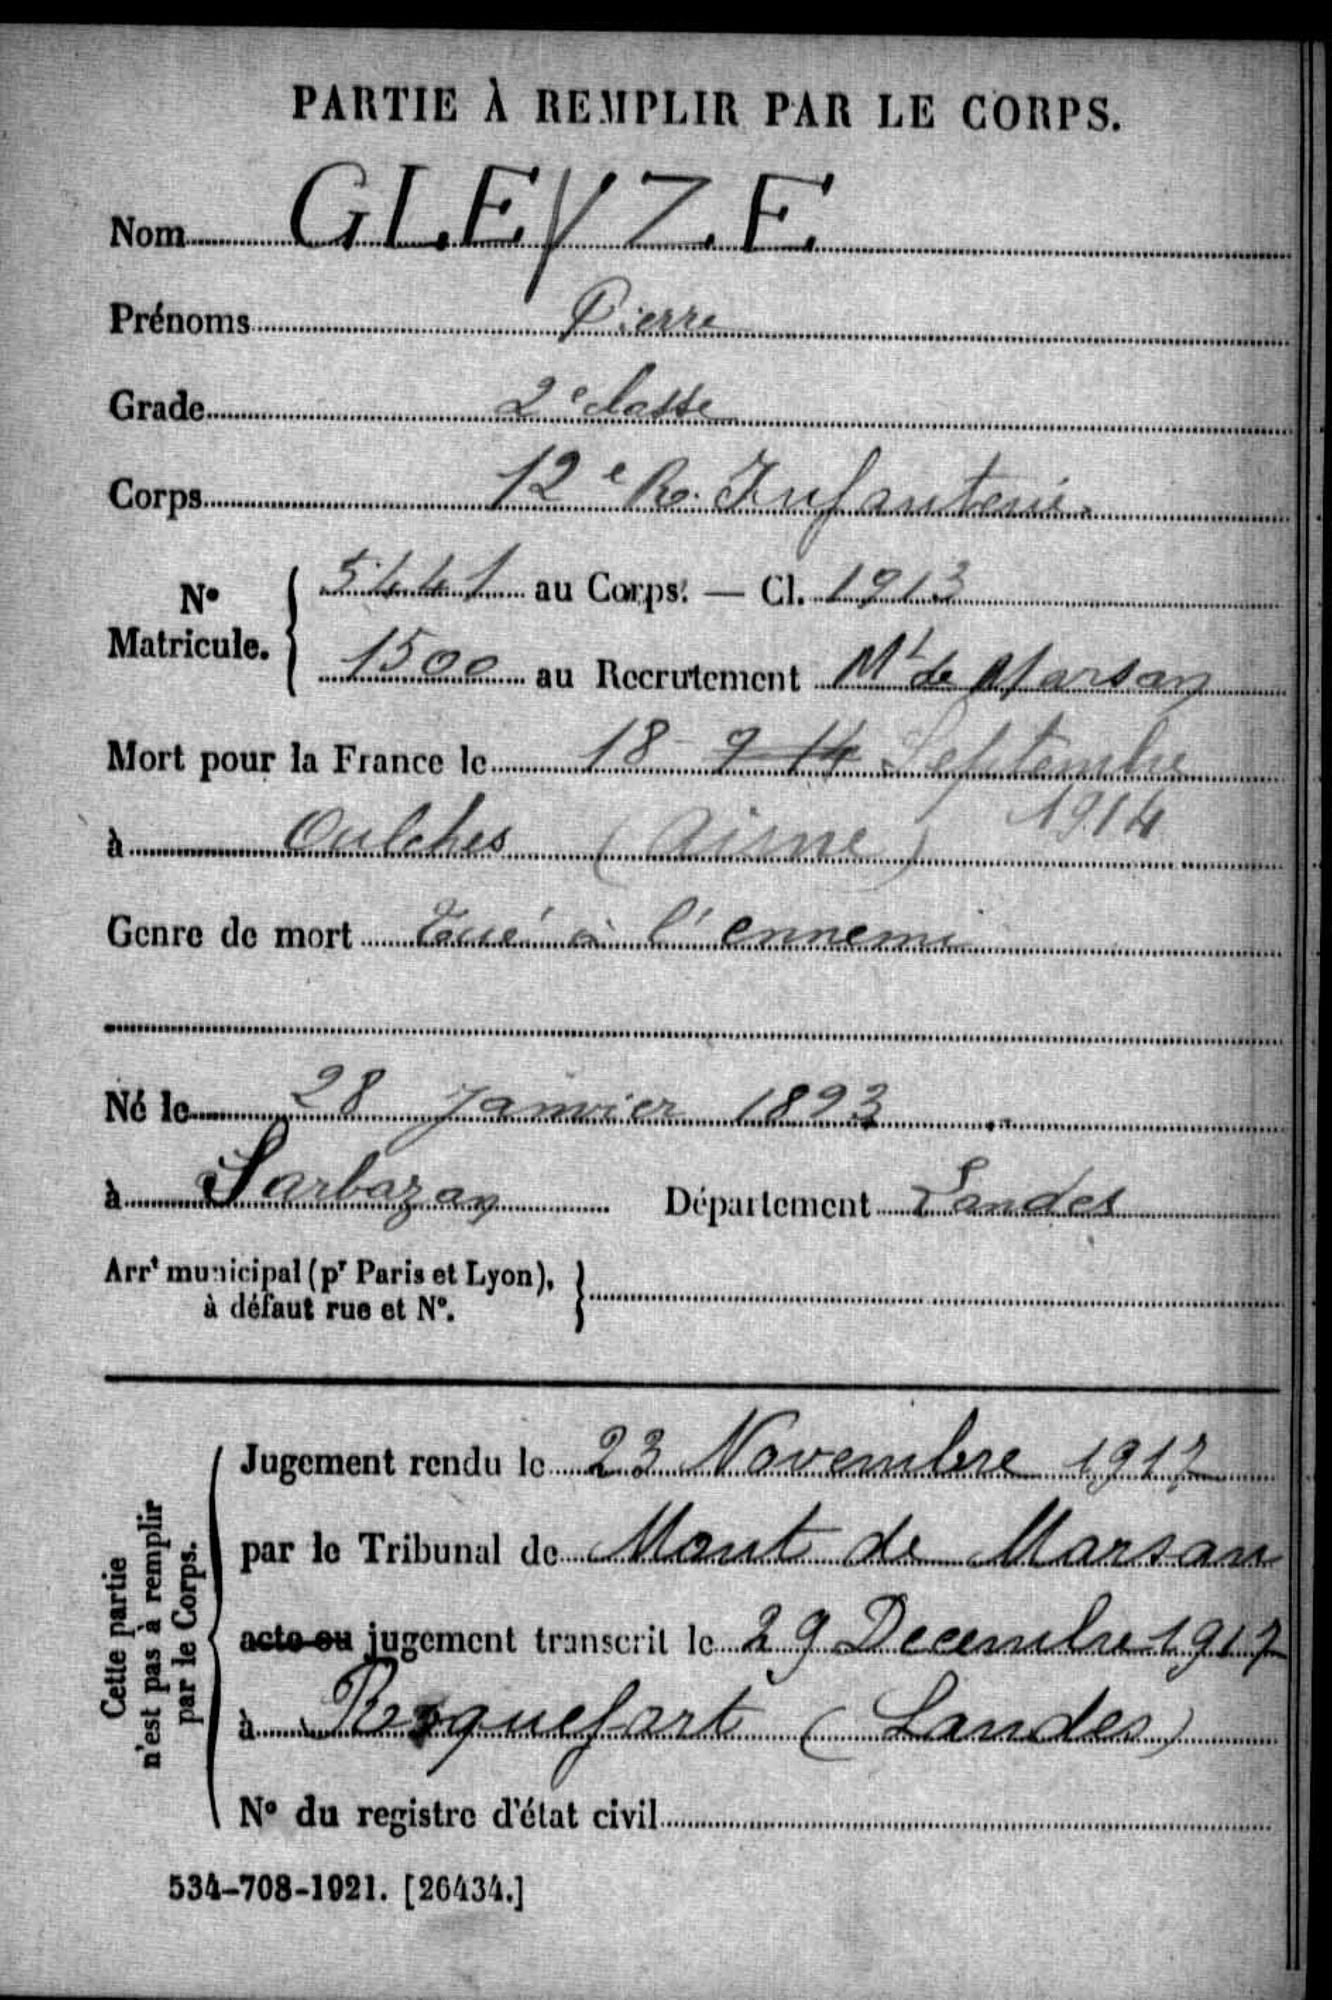 PARTIE À REMPLIR PAR LE CORPS.
Nom GLEYZE
Prénoms Pierre
Grade 2e classe
Corps 12e R. Infanterie.
No Matricule. 5441 au Corps. — Cl. 1913
1500 au Recrutement Mt de Marsan
Mort pour la France le 18 9 14 Septembre
1914
à Oulches (Aisne)
Genre de mort Tué à l'ennemi
Né le 28 Janvier 1893
à Sarbazan Département Landes
Arrt municipal (pr Paris et Lyon),
à défaut rue et No.
Cette partie
n'est pas à remplir
par le Corps.
Jugement rendu le 23 Novembre 1917
par le Tribunal de Mont de Marsan
acte ou jugement transcrit le 29 Decembre 1917
à Roquefort (Landes)
No du registre d'état civil
534-708-1921. [26434.]